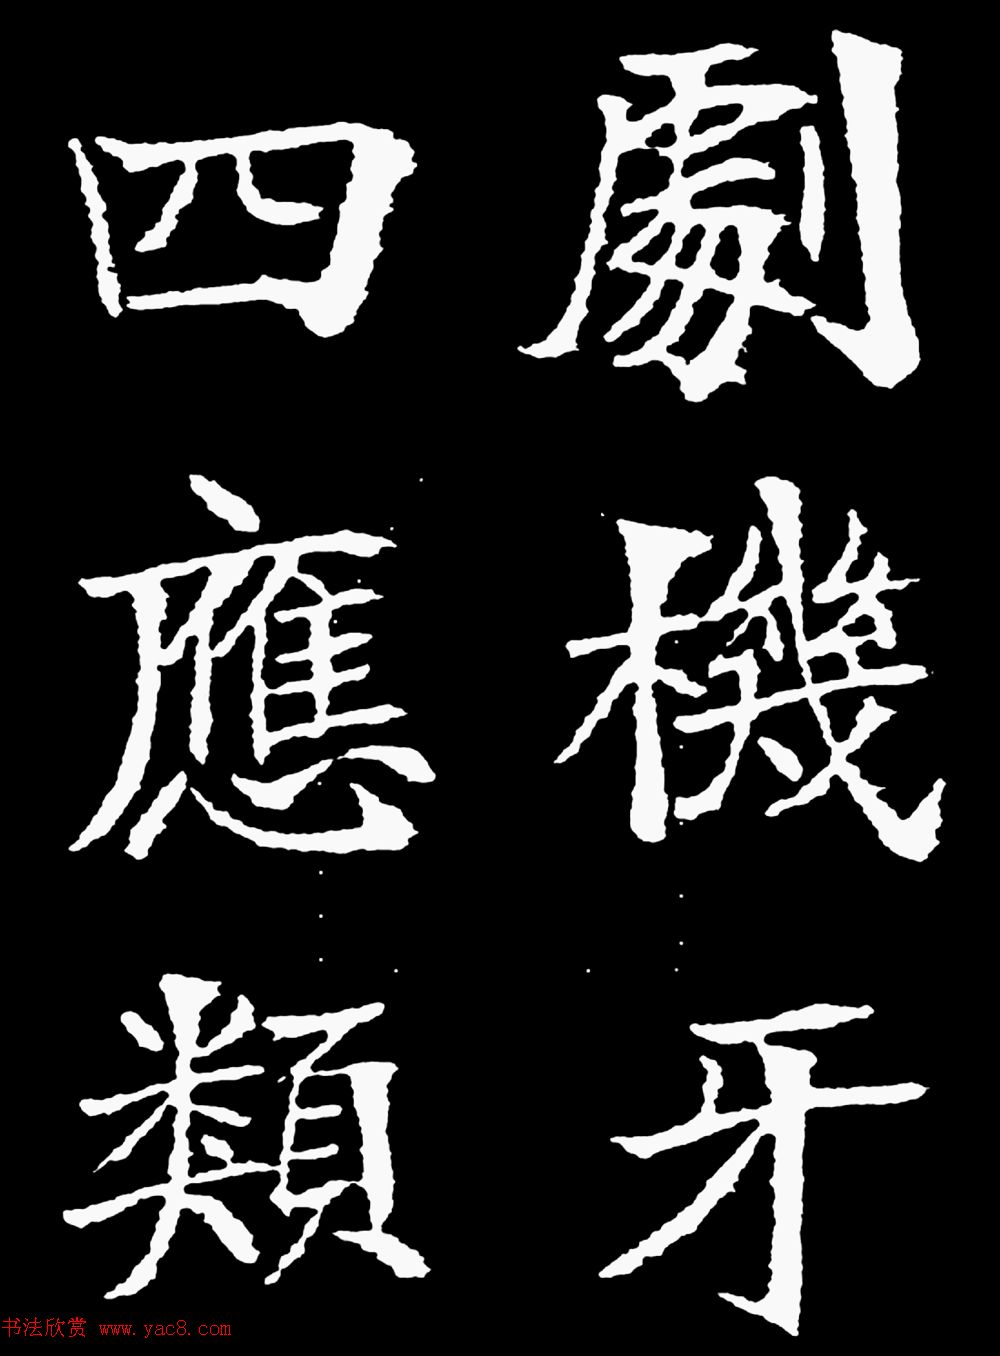 劇機牙
四應類
书法欣赏 www.yac8.com